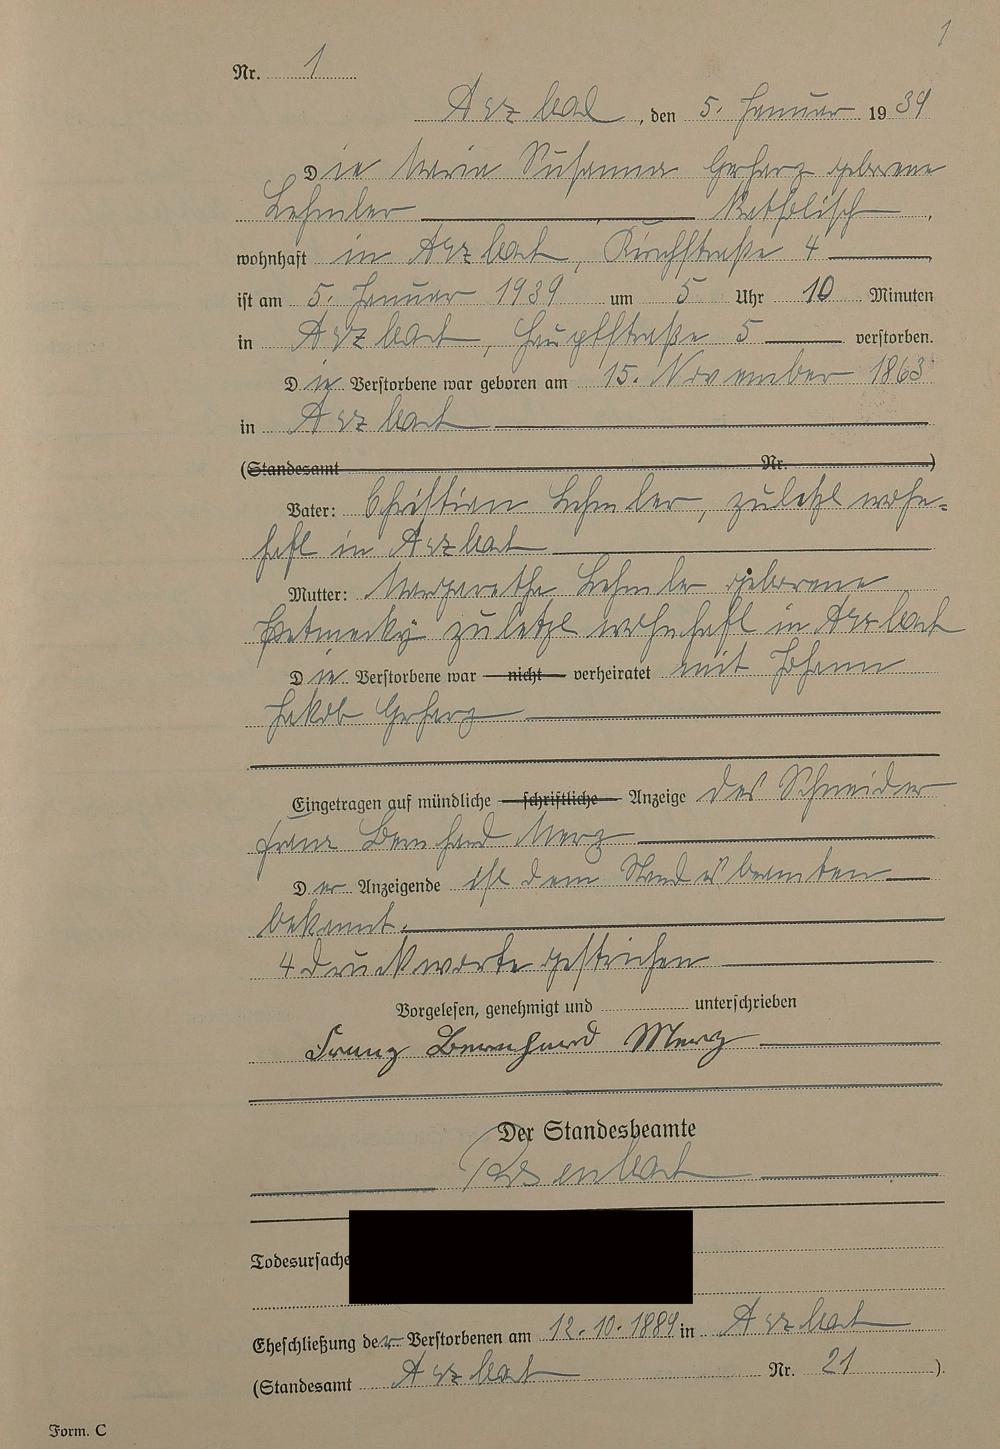 1
Nr. 1
Arzbach, den 5. Januar 1939
Die Maria Susanna Gerharz geborene
Lehmler katholisch,
wohnhaft in Arzbach, Kirchstraße 4
ist am 5. Januar 1939 um 5 Uhr 10 Minuten
in Arzbach, Hauptstraße 5 verstorben.
Die Verstorbene war geboren am 15. November 1863
in Arzbach
(Standesamt Nr. )
Vater: Christian Lehmler, zuletzt wohn-
haft in Arzbach
Mutter: Margaretha Lehmler geborene
zuletzt wohnhaft in Arzbach
Die Verstorbene war nicht verheiratet mit Johann
Jakob Gerharz
Eingetragen auf mündliche schriftliche Anzeige des Schneider
Franz Bernhard Merz
Der Anzeigende ist dem Standesbeamten
bekannt.
4 Druckworte gestrichen
Vorgelesen, genehmigt und unterschrieben
Franz Bernhard Merz
Der Standesbeamte
Todesursache
Eheschließung der Verstorbenen am 12.10.1889 in Arzbach
(Standesamt Arzbach Nr. 21 ).
Form. C